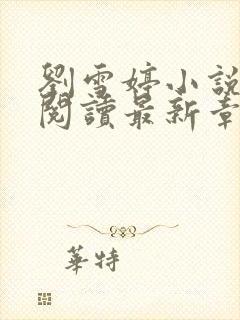 劉雪婷小說
閱讀最新章
華特